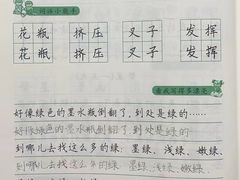 词语小能手
花瓶 挤压 叉子 发挥
花瓶 挤压 叉子 发挥
看我写得多漂亮
好像绿色的墨水瓶倒翻了，到处是绿的……
好像绿色的墨水瓶倒翻了，到处是绿的……
到哪儿去找这么多的绿：墨绿、浅绿、嫩绿、
到哪儿去找这么多的绿：墨绿、浅绿、嫩绿、